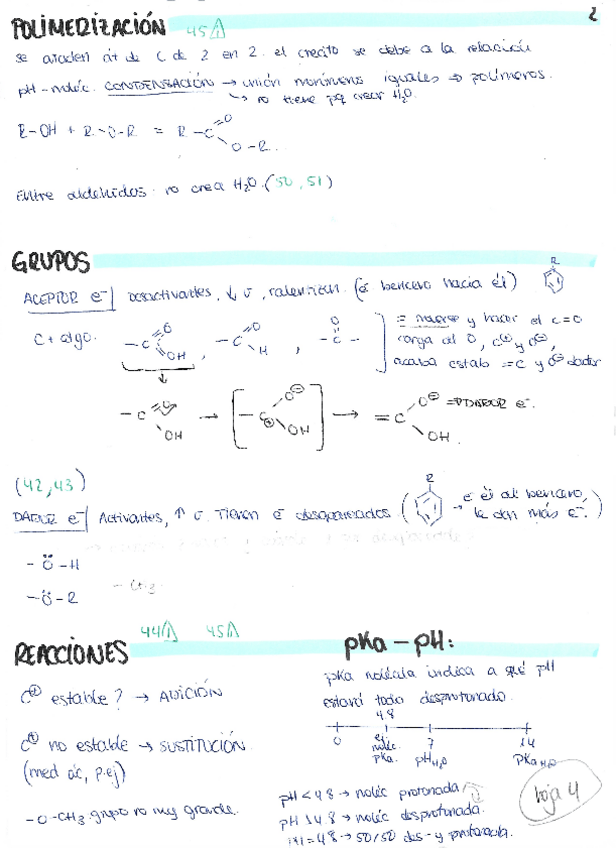 2
POLIMERIZACIÓN 45
se añaden át de C de 2 en 2. el crecito se debe a la relación
pH-moléc. CONDENSACIÓN → unión monómeros iguales → polímeros.
↳ no tiene pq crear H₂O.
R-OH + R-O-R = R-C=O O-R.
Entre aldehídos no crea H₂O. (50, 51)
GRUPOS
ACEPTOR e⁻ Desactivantes, ↓ v, ralentizan. (e⁻ benceno hacia él) R
C + algo. -C=O OH, -C=O H, -C=O-
y hacer el C=O
carga al O, C⊕ y O⊖,
acaba estab =C y O⊖ dador
-C=O OH → [-C⊕ O⊖ OH] → =C O⊖ OH. DADOR e⁻.
(42,43)
DADOR e⁻ Activantes, ↑ v. Tienen e⁻ desapareados ( R → e⁻ él al benceno,
le dan más e⁻.)
-Ö-H
-Ö-R
-CH₃
44 45
REACCIONES
C⊕ estable? → ADICIÓN
C⊕ no estable → SUSTITUCIÓN.
(med ác, p.ej)
-O-CH₃ grupo no muy grande.
pKa-pH:
pKa molécula indica a qué pH
estará todo desprotonado.
4.8
0 7 14
ej. moléc. pKa. pH H₂O pKa H₂O
pH < 4.8 → moléc protonada
pH > 4.8 → moléc desprotonada.
pH = 4.8 → 50/50 des- y protonada.
hoja 4